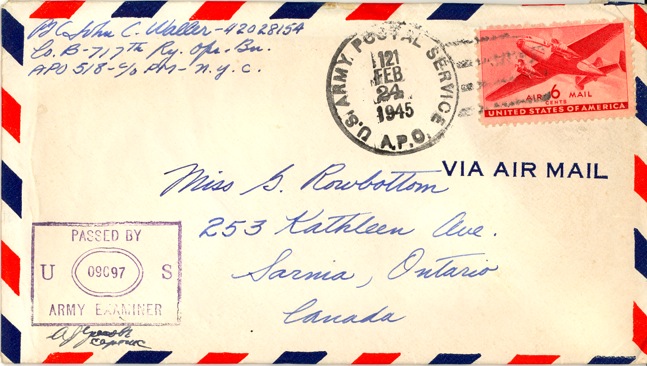 Pfc John C. Waller-42028154
Co. B-717th Ry. Opr. Bn.
APO 518-c/o PM-N.Y.C.
U.S. ARMY. POSTAL SERVICE
121
FEB
24
1945
A.P.O.
AIR 6 MAIL
CENTS
UNITED STATES OF AMERICA
VIA AIR MAIL
Miss G. Rowbottom
253 Kathleen Ave.
Sarnia, Ontario
Canada
PASSED BY
U 09C97 S
ARMY EXAMINER